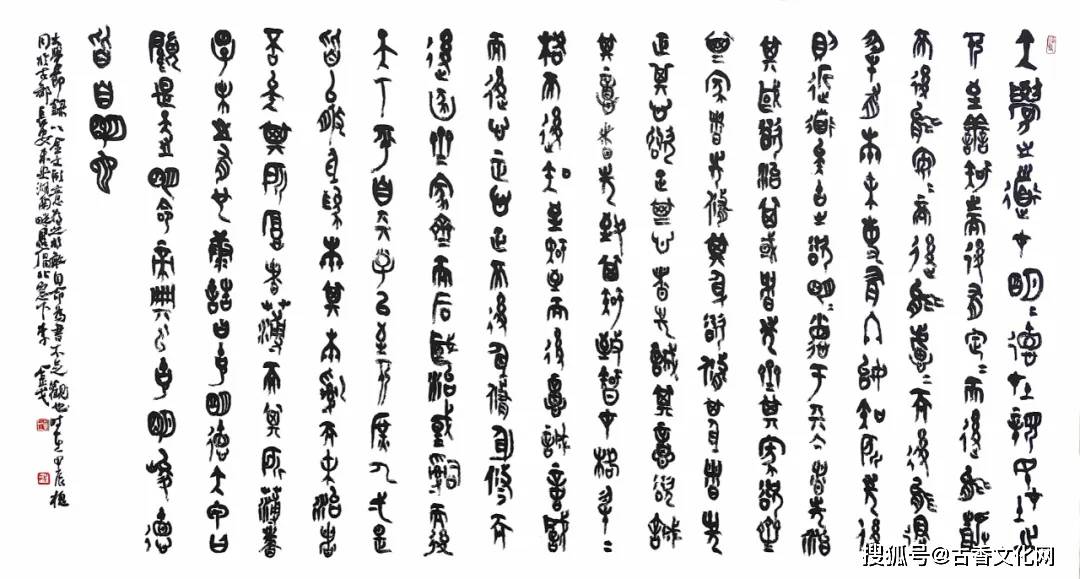 大學之道才明=德才親民才止
于至善知止而後有定=而後能靜=
而後能安=而後能慮=而後能得
物有本末事有終始知所先後
則近道矣古之欲明=德于天下者先治
其國欲治其國者先齊其家欲齊
其家者先修其身欲修其身者先
正其心欲正其心者先誠其意欲誠
其意者先致其知致知才格物=
格而後知至知至而後意誠意誠
而後心正心正而後身修身修而
後家齊家齊而后國治國治而後
天下平自天子以至于庶人弌是
皆以修身為本其本亂而末治者
否矣其所厚者薄而其所薄者
厚未之有也康誥曰克明德大甲曰
顧是天之明命帝典曰克明峻德
皆自明也
大學節錄以金文為書不足觀也時在甲辰槐
月於古都長安北窗下李金戈
搜狐号@古香文化网